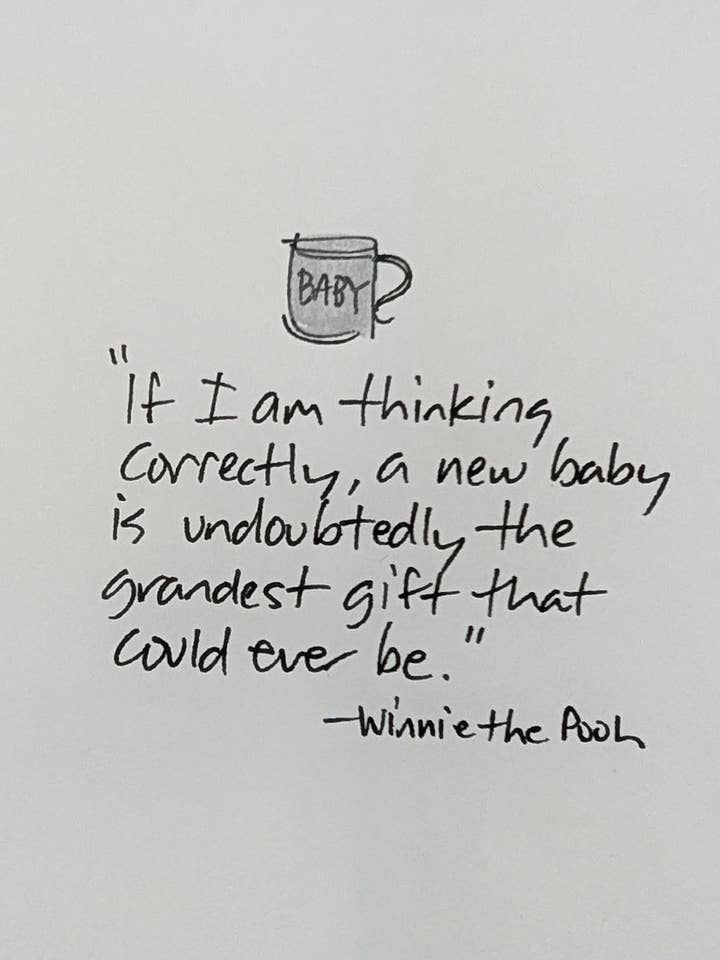 BABY
"If I am thinking
correctly, a new baby
is undoubtedly the
grandest gift that
could ever be."
—Winnie the Pooh